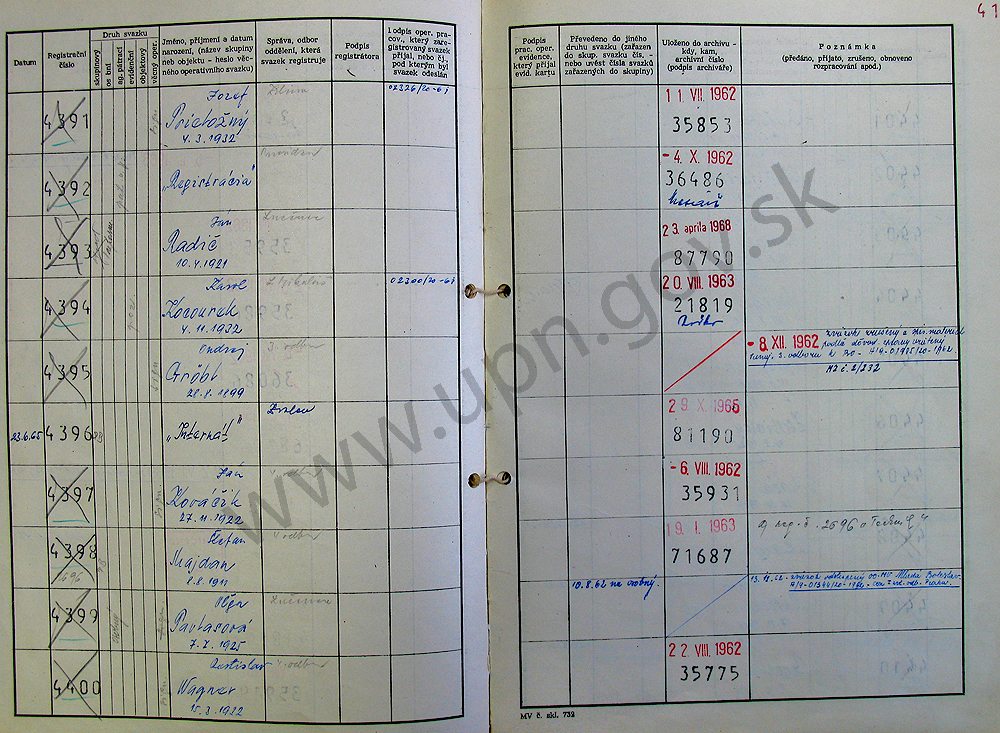 41
Datum
Registrační číslo
Druh svazku
skupinový
osobní
ag. pátrací
evidenční
objektový
věcný oper.
Jméno, příjmení a datum
narození, (název skupiny
neb objektu – heslo věc-
ného operativního svazku)
Správa, odbor
oddělení, která
svazek registruje
Podpis
registrátora
Podpis oper. pra-
cov., který zare-
gistrovaný svazek
přijal, nebo čj.
pod kterým byl
svazek odeslán
4391
Jozef
Príložný
4.3.1932
Žilina
02326/20-61
4392
"Registrácia"
4393
Ján
Radič
10.4.1921
Lučenec
4394
Karol
Kocourek
4.11.1932
02300/20-61
4395
Ondrej
Gröbl
3. odbor
23.6.65
4396
"Internát"
Zvolen
4397
Ján
Kováčik
27.11.1922
V. odbor
4398
2696
Štefan
Majdan
8.8.1911
V. odbor
4399
Oľga
Pavlasová
7.X.1925
Lučenec
4400
Rastislav
Wagner
15.3.1922
V. odbor
Podpis
prac. oper.
evidence,
který přijal
evid. kartu
Převedeno do jiného
druhu svazku (zařazen
do skup. svazku čís. -
nebo uvést čísla svazků
zařazených do skupiny)
Uloženo do archivu -
kdy, kam,
archivní číslo
(podpis archiváře)
Poznámka
(předáno, přijato, zrušeno, obnoveno
rozpracování apod.)
11. VII. 1962
35853
-4. X. 1962
36486
23. apríla 1968
87790
20. VIII. 1963
21819
-8. XII. 1962
zväzok zrušený a
3. odboru k 20- A19-01985/20-1962.
M2 č. 2/232
29. X. 1965
81190
-6. VIII. 1962
35931
19. I. 1963
71687
reg. č. 2696
10.8.62 na osobný.
zväzok odstúpený OO-MV Mladá Boleslav
22. VIII. 1962
35775
MV č. skl. 732
www.upn.gov.sk